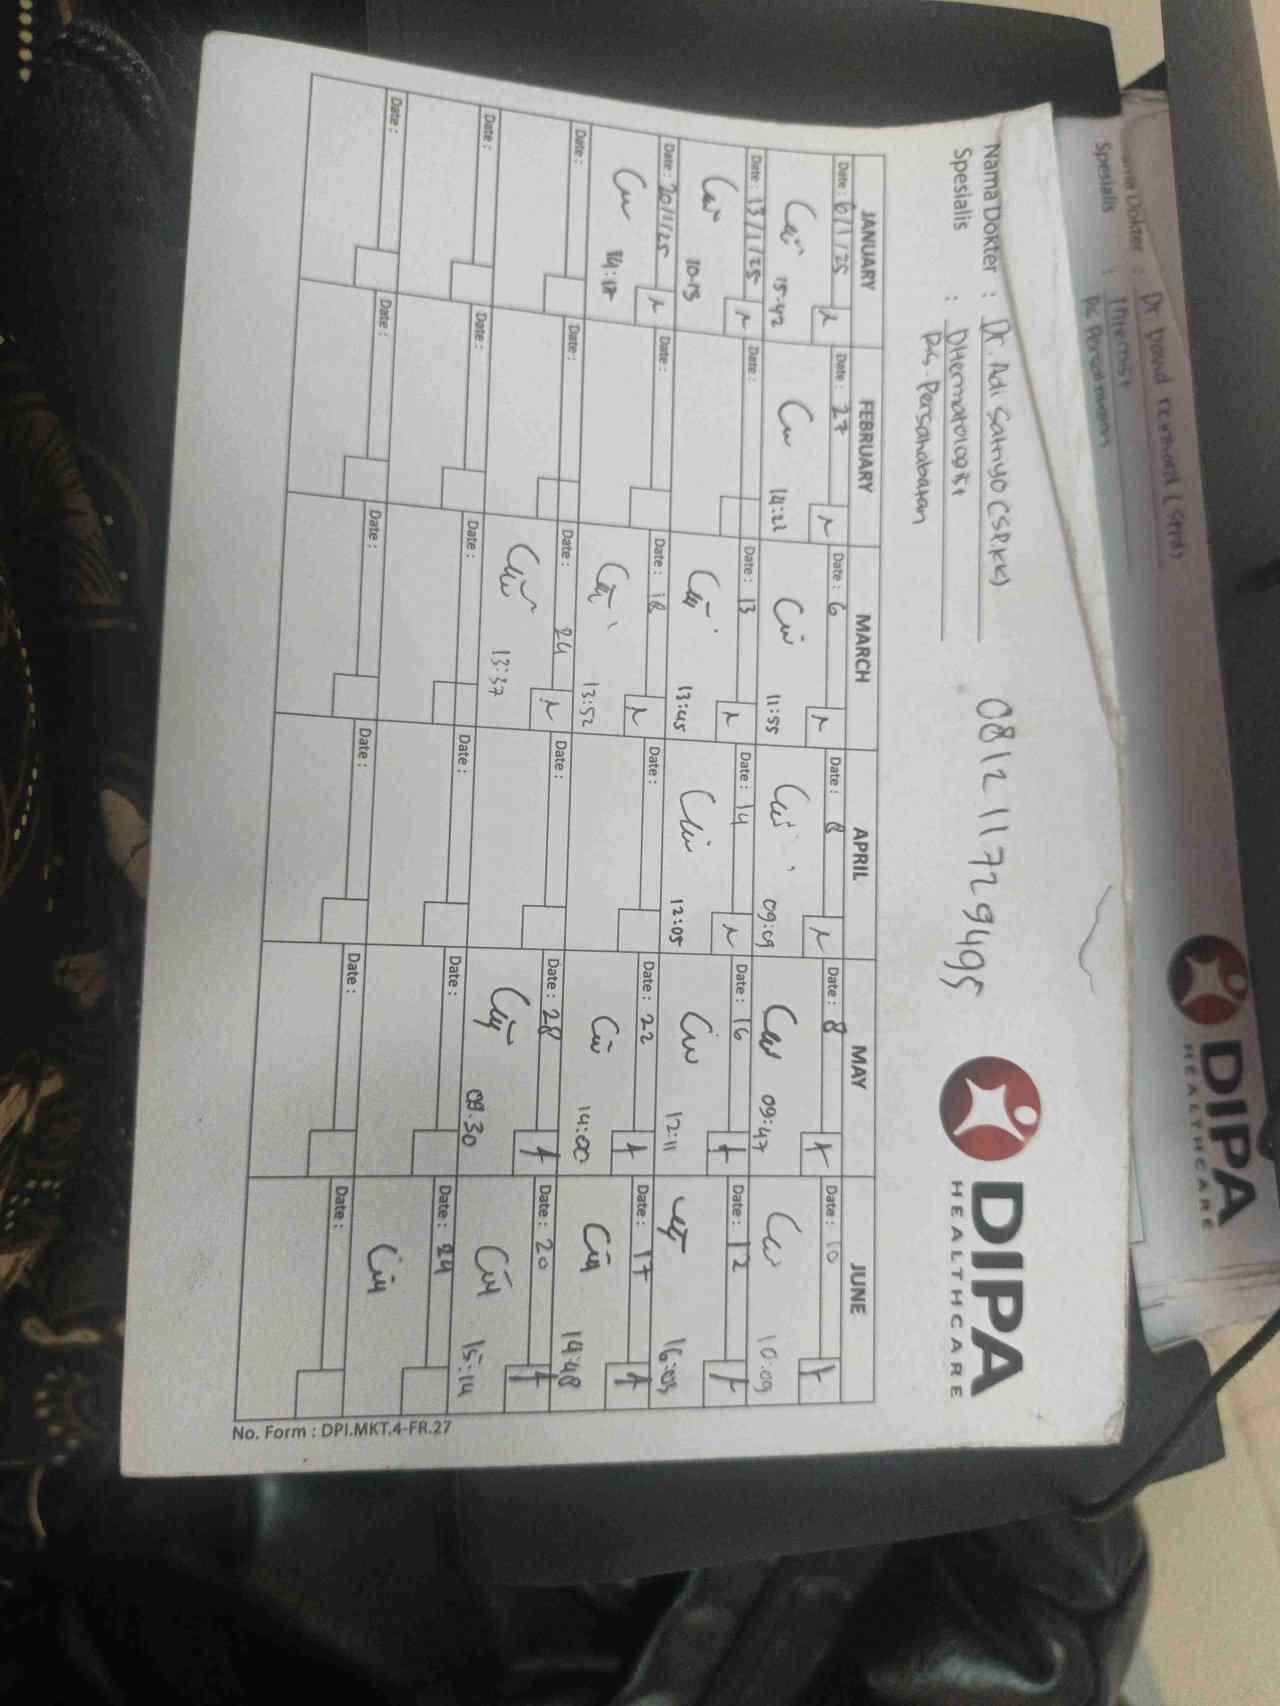 Dr David reinhard (SPPD)
Spesialis : Internist
DIPA
HEALTHCARE
Nama Dokter : Dr. Adi Satriyo (SP.KK)
Spesialis : DHermatologist
R.S. Persahabatan
081211729495
DIPA
HEALTHCARE
JANUARY FEBRUARY MARCH APRIL MAY JUNE
Date: 6/1/25 Date: 27 Date: 6 Date: 8 Date: 8 Date: 10
15:42 14:21 11:55 09:09 09:47 10:09
Date: 13/1/25 Date: Date: 13 Date: 14 Date: 16 Date: 12
10.13 13:45 12:05 12:11 16:03
Date: 20/1/25 Date: Date: 18 Date: Date: 22 Date: 17
14:17 13:52 14:00 14:48
Date: Date: Date: 24 Date: Date: 28 Date: 20
13:37 08.30 15:14
Date: Date: Date: Date: Date: Date: 24
Date: Date: Date: Date: Date: Date:
No. Form : DPI.MKT.4-FR.27